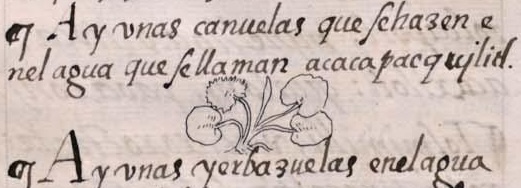 ¶ Ay vnas cañuelas que sehazen e
nel agua que sellaman acacapacquilitl.
¶ Ay vnas yerbazuelas enel agua